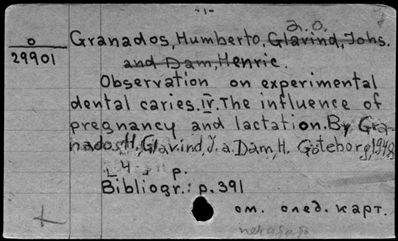 -1-
a.o.
o Granados, Humberto, Glavind, Johs.
29901 and Dam, Henric.
Observation on experimental
dental caries. IV. The influence of
pregnancy and lactation. By Gra-
nados, H., Glavind, J. a. Dam, H. Göteborg, 1948
p.
Bibliogr.: p. 391
см. след. карт.